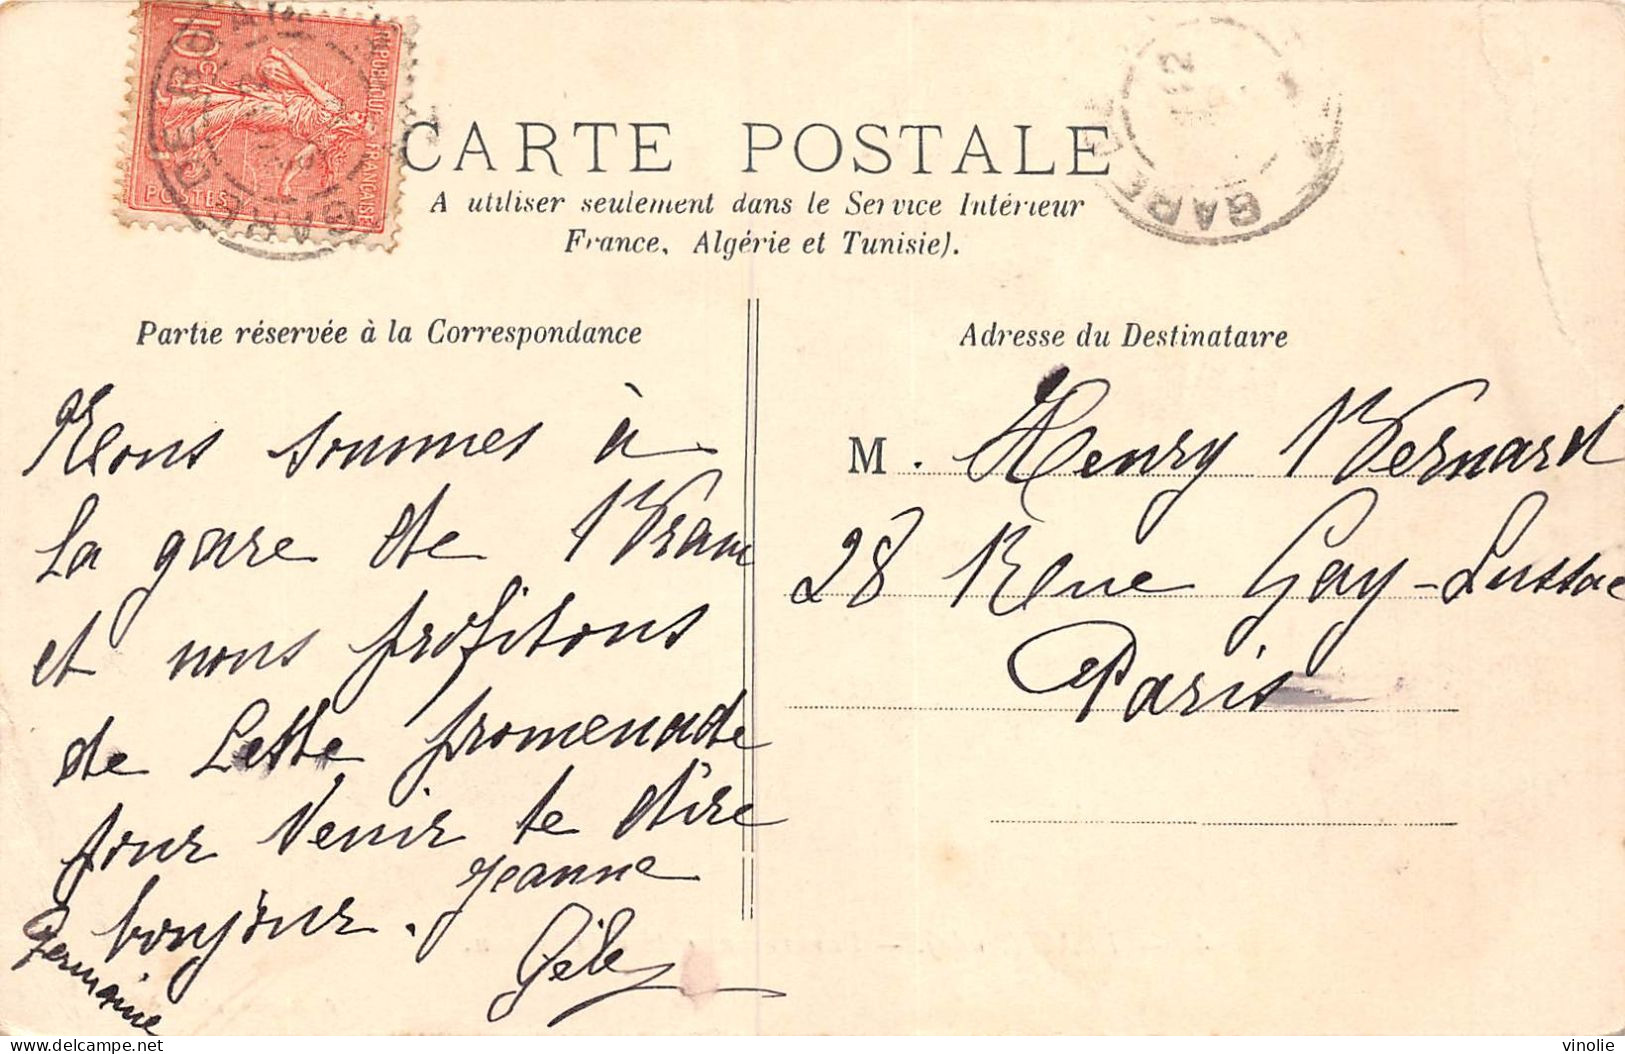 10c
REPUBLIQUE FRANÇAISE
POSTES
GARE DE
CARTE POSTALE
GARE DE
12
A utiliser seulement dans le Service Intérieur
France, Algérie et Tunisie).
Partie réservée à la Correspondance
Nous sommes à
la gare de Bram
et nous profitons
de cette promenade
pour venir te dire
bonjour. Jeanne
Germaine
Adresse du Destinataire
M. Henry Bernard
28 Rue Gay-Lussac
Paris
vinolie